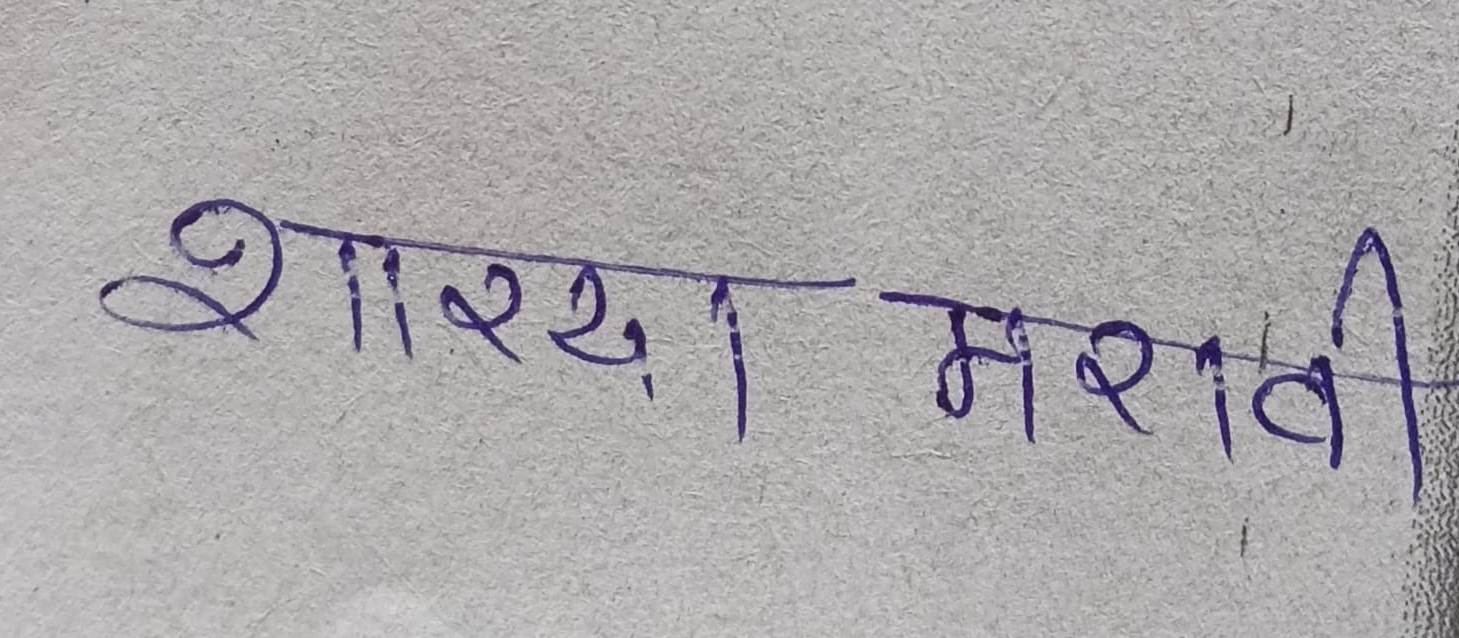 शारदा मरावी